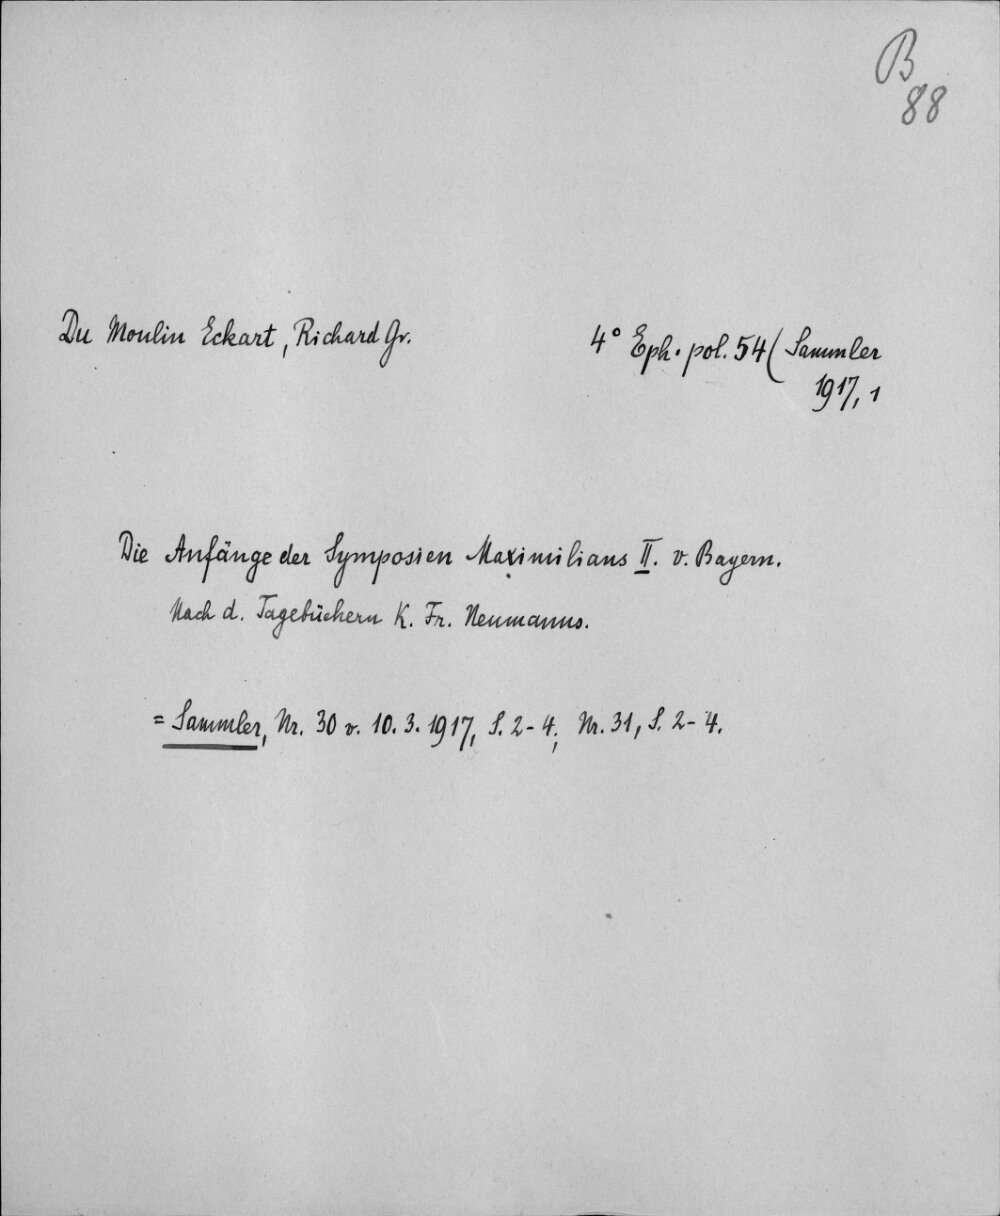 B
88
Du Moulin Eckart, Richard Gr.
4° Eph. pol. 54 ( Sammler
1917, 1
Die Anfänge der Symposien Maximilians II. v. Bayern.
Nach d. Tagebüchern K. Fr. Neumanns.
= Sammler, Nr. 30 v. 10. 3. 1917, S. 2-4; Nr. 31, S. 2-4.